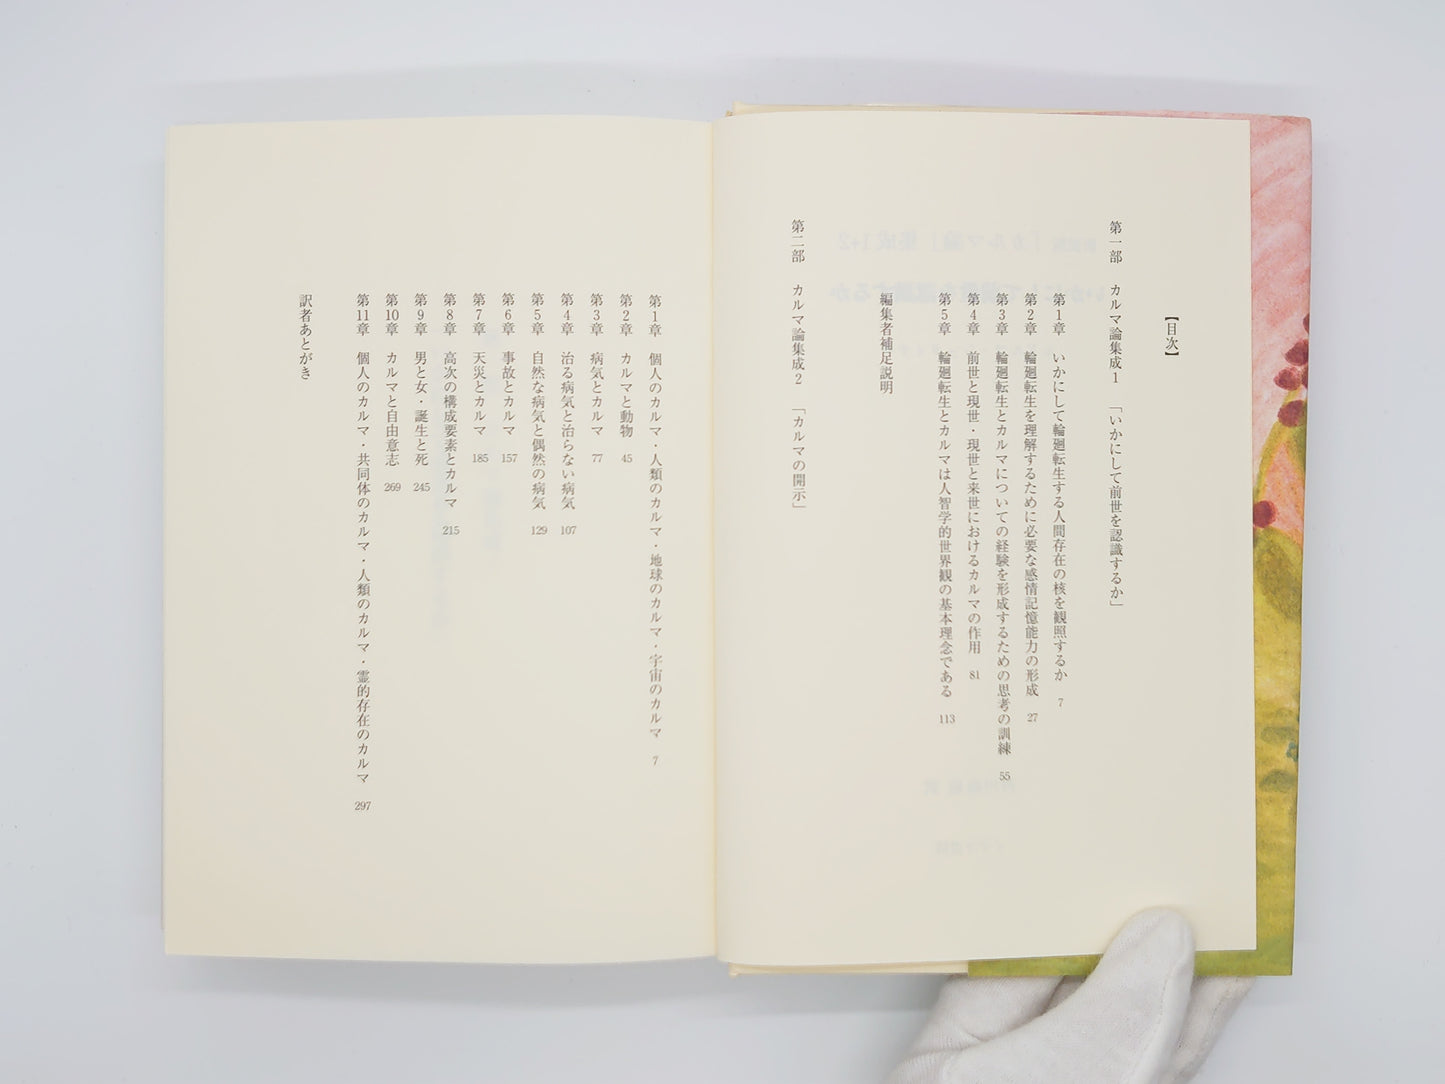 【目次】
第一部 カルマ論集成1 「いかにして前世を認識するか」
第1章 いかにして輪廻転生する人間存在の核を観照するか 7
第2章 輪廻転生を理解するために必要な感情記憶能力の形成 27
第3章 輪廻転生とカルマについての経験を形成するための思考の訓練 55
第4章 前世と現世・現世と来世におけるカルマの作用 81
第5章 輪廻転生とカルマは人智学的世界観の基本理念である 113
編集者補足説明
第二部 カルマ論集成2 「カルマの開示」
第1章 個人のカルマ・人類のカルマ・地球のカルマ・宇宙のカルマ 7
第2章 カルマと動物 45
第3章 病気とカルマ 77
第4章 治る病気と治らない病気 107
第5章 自然な病気と偶然の病気 129
第6章 事故とカルマ 157
第7章 天災とカルマ 185
第8章 高次の構成要素とカルマ 215
第9章 男と女・誕生と死 245
第10章 カルマと自由意志 269
第11章 個人のカルマ・共同体のカルマ・人類のカルマ・霊的存在のカルマ 297
訳者あとがき